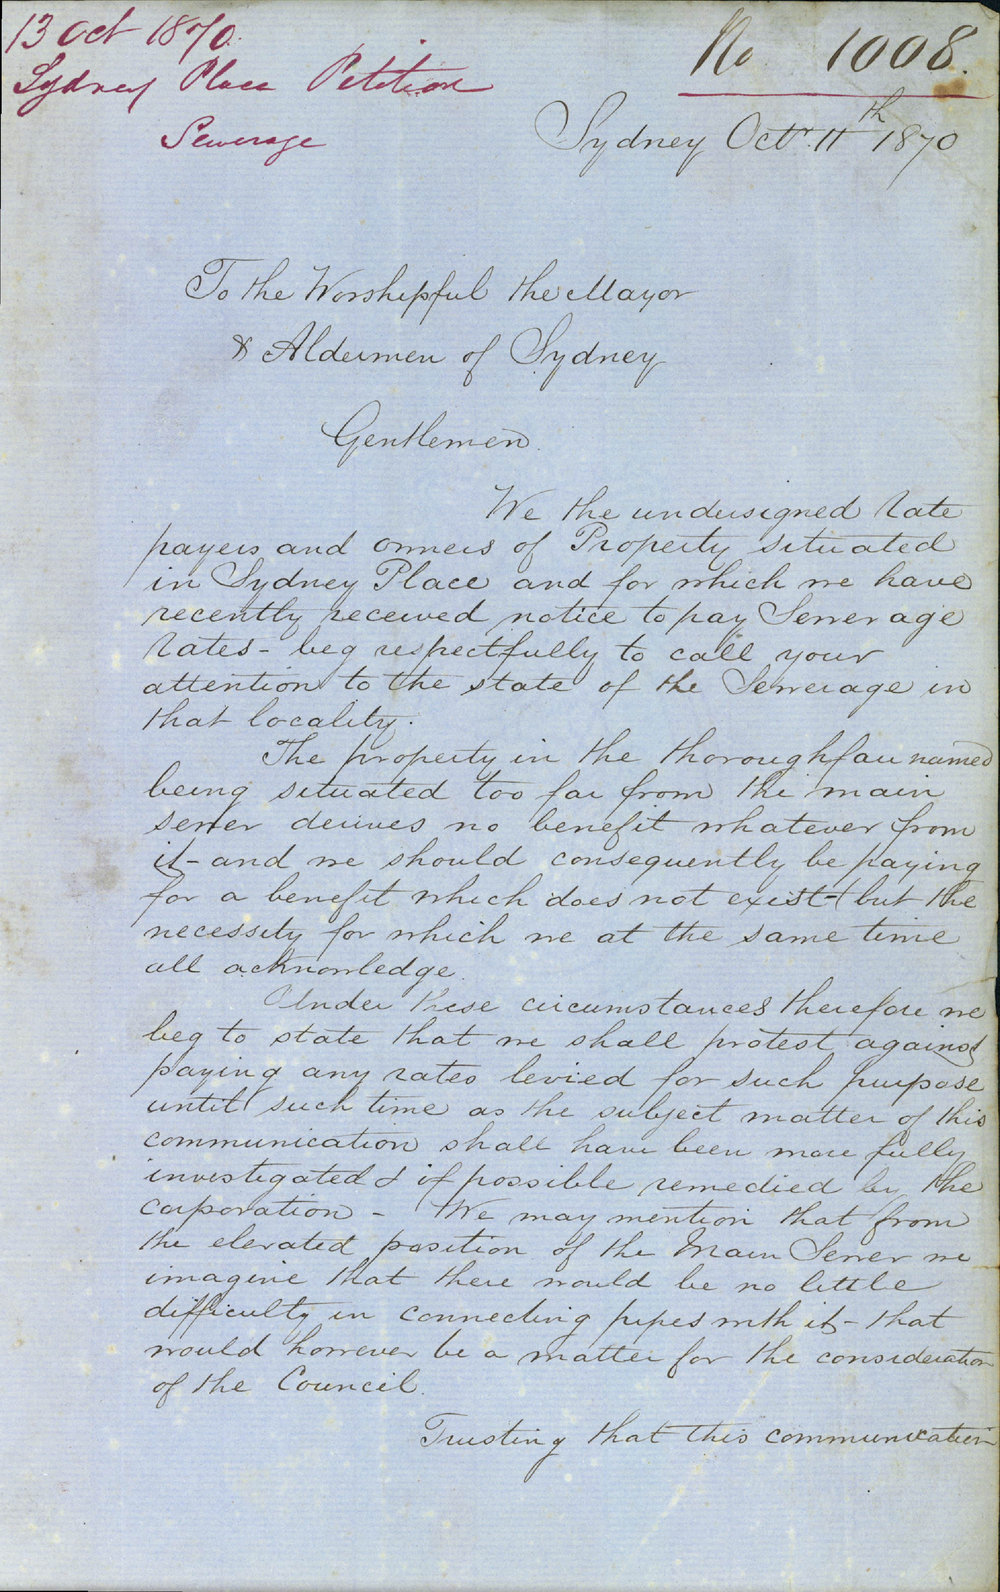 13 Oct 1870.
Sydney Place Petition
Sewerage
No 1008.
Sydney Octr. 11th 1870
To the Worshipful the Mayor
& Aldermen of Sydney
Gentlemen.
We the undersigned rate
payers and owners of Property situated
in Sydney Place and for which we have
recently received notice to pay Sewerage
rates - beg respectfully to call your
attention to the state of the Sewerage in
that locality.
The property in the thoroughfare named
being situated too far from the main
sewer derives no benefit whatever from
it - and we should consequently be paying
for a benefit which does not exist - but the
necessity for which we at the same time
all acknowledge.
Under these circumstances therefore we
beg to state that we shall protest against
paying any rates levied for such purpose
until such time as the subject matter of this
communication shall have been more fully
investigated & if possible remedied by the
corporation - We may mention that from
the elevated position of the Main Sewer we
imagine that there would be no little
difficulty in connecting pipes with it - that
would however be a matter for the consideration
of the Council.
Trusting that this communication